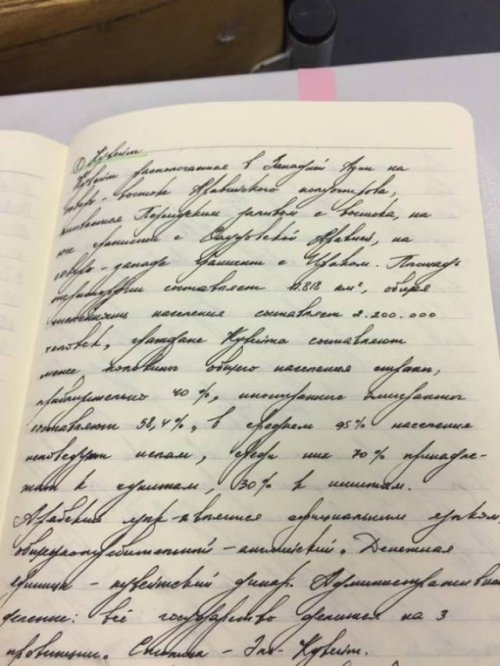 ① Кувейт
Кувейт располагается в Западной Азии на
северо-востоке Аравийского полуострова,
омывается Персидским заливом с востока, на
юге граничит с Саудовской Аравией, на
северо-западе граничит с Ираком. Площадь
территории составляет 17.818 км², общая
численность населения составляет 2.200.000
человек, граждане Кувейта составляют
менее половины общего населения страны,
приблизительно 40%, иностранные эмигранты
составляют 58,4%, в среднем 95% населения
исповедует ислам, среди них 70% принадле-
жат к суннитам, 30% к шиитам.
Арабский язык является официальным языком,
общеупотребительный - английский. Денежная
единица - кувейтский динар. Административное
деление: всё государство делится на 3
провинции. Столица - Эль-Кувейт.